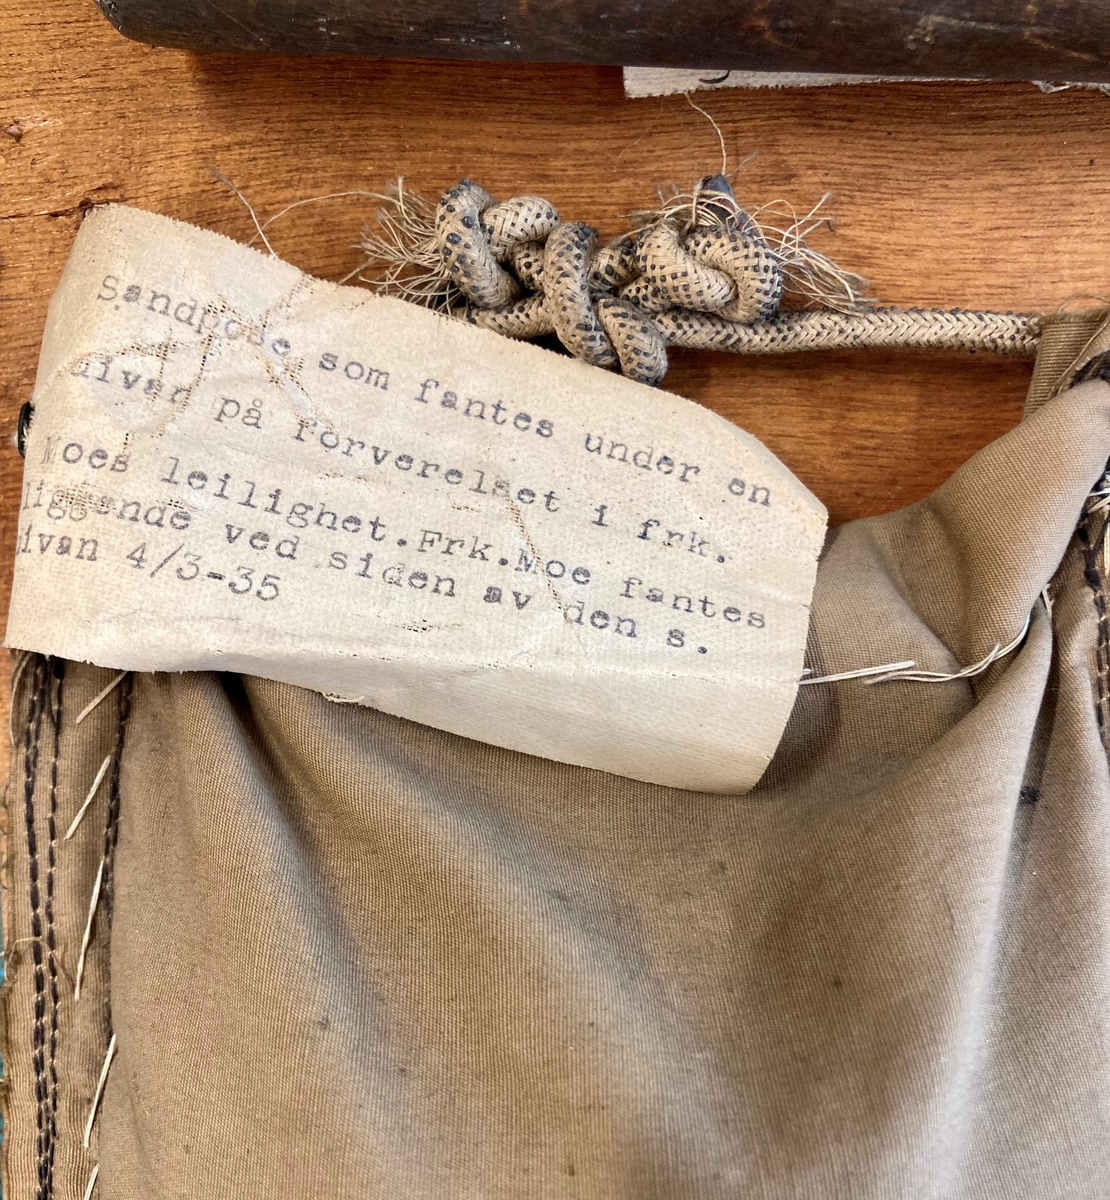 Sandpose som fantes under en
divan på forverelset i frk.
Moes leilighet. Frk. Moe fantes
liggende ved siden av den s.
divan 4/3-35